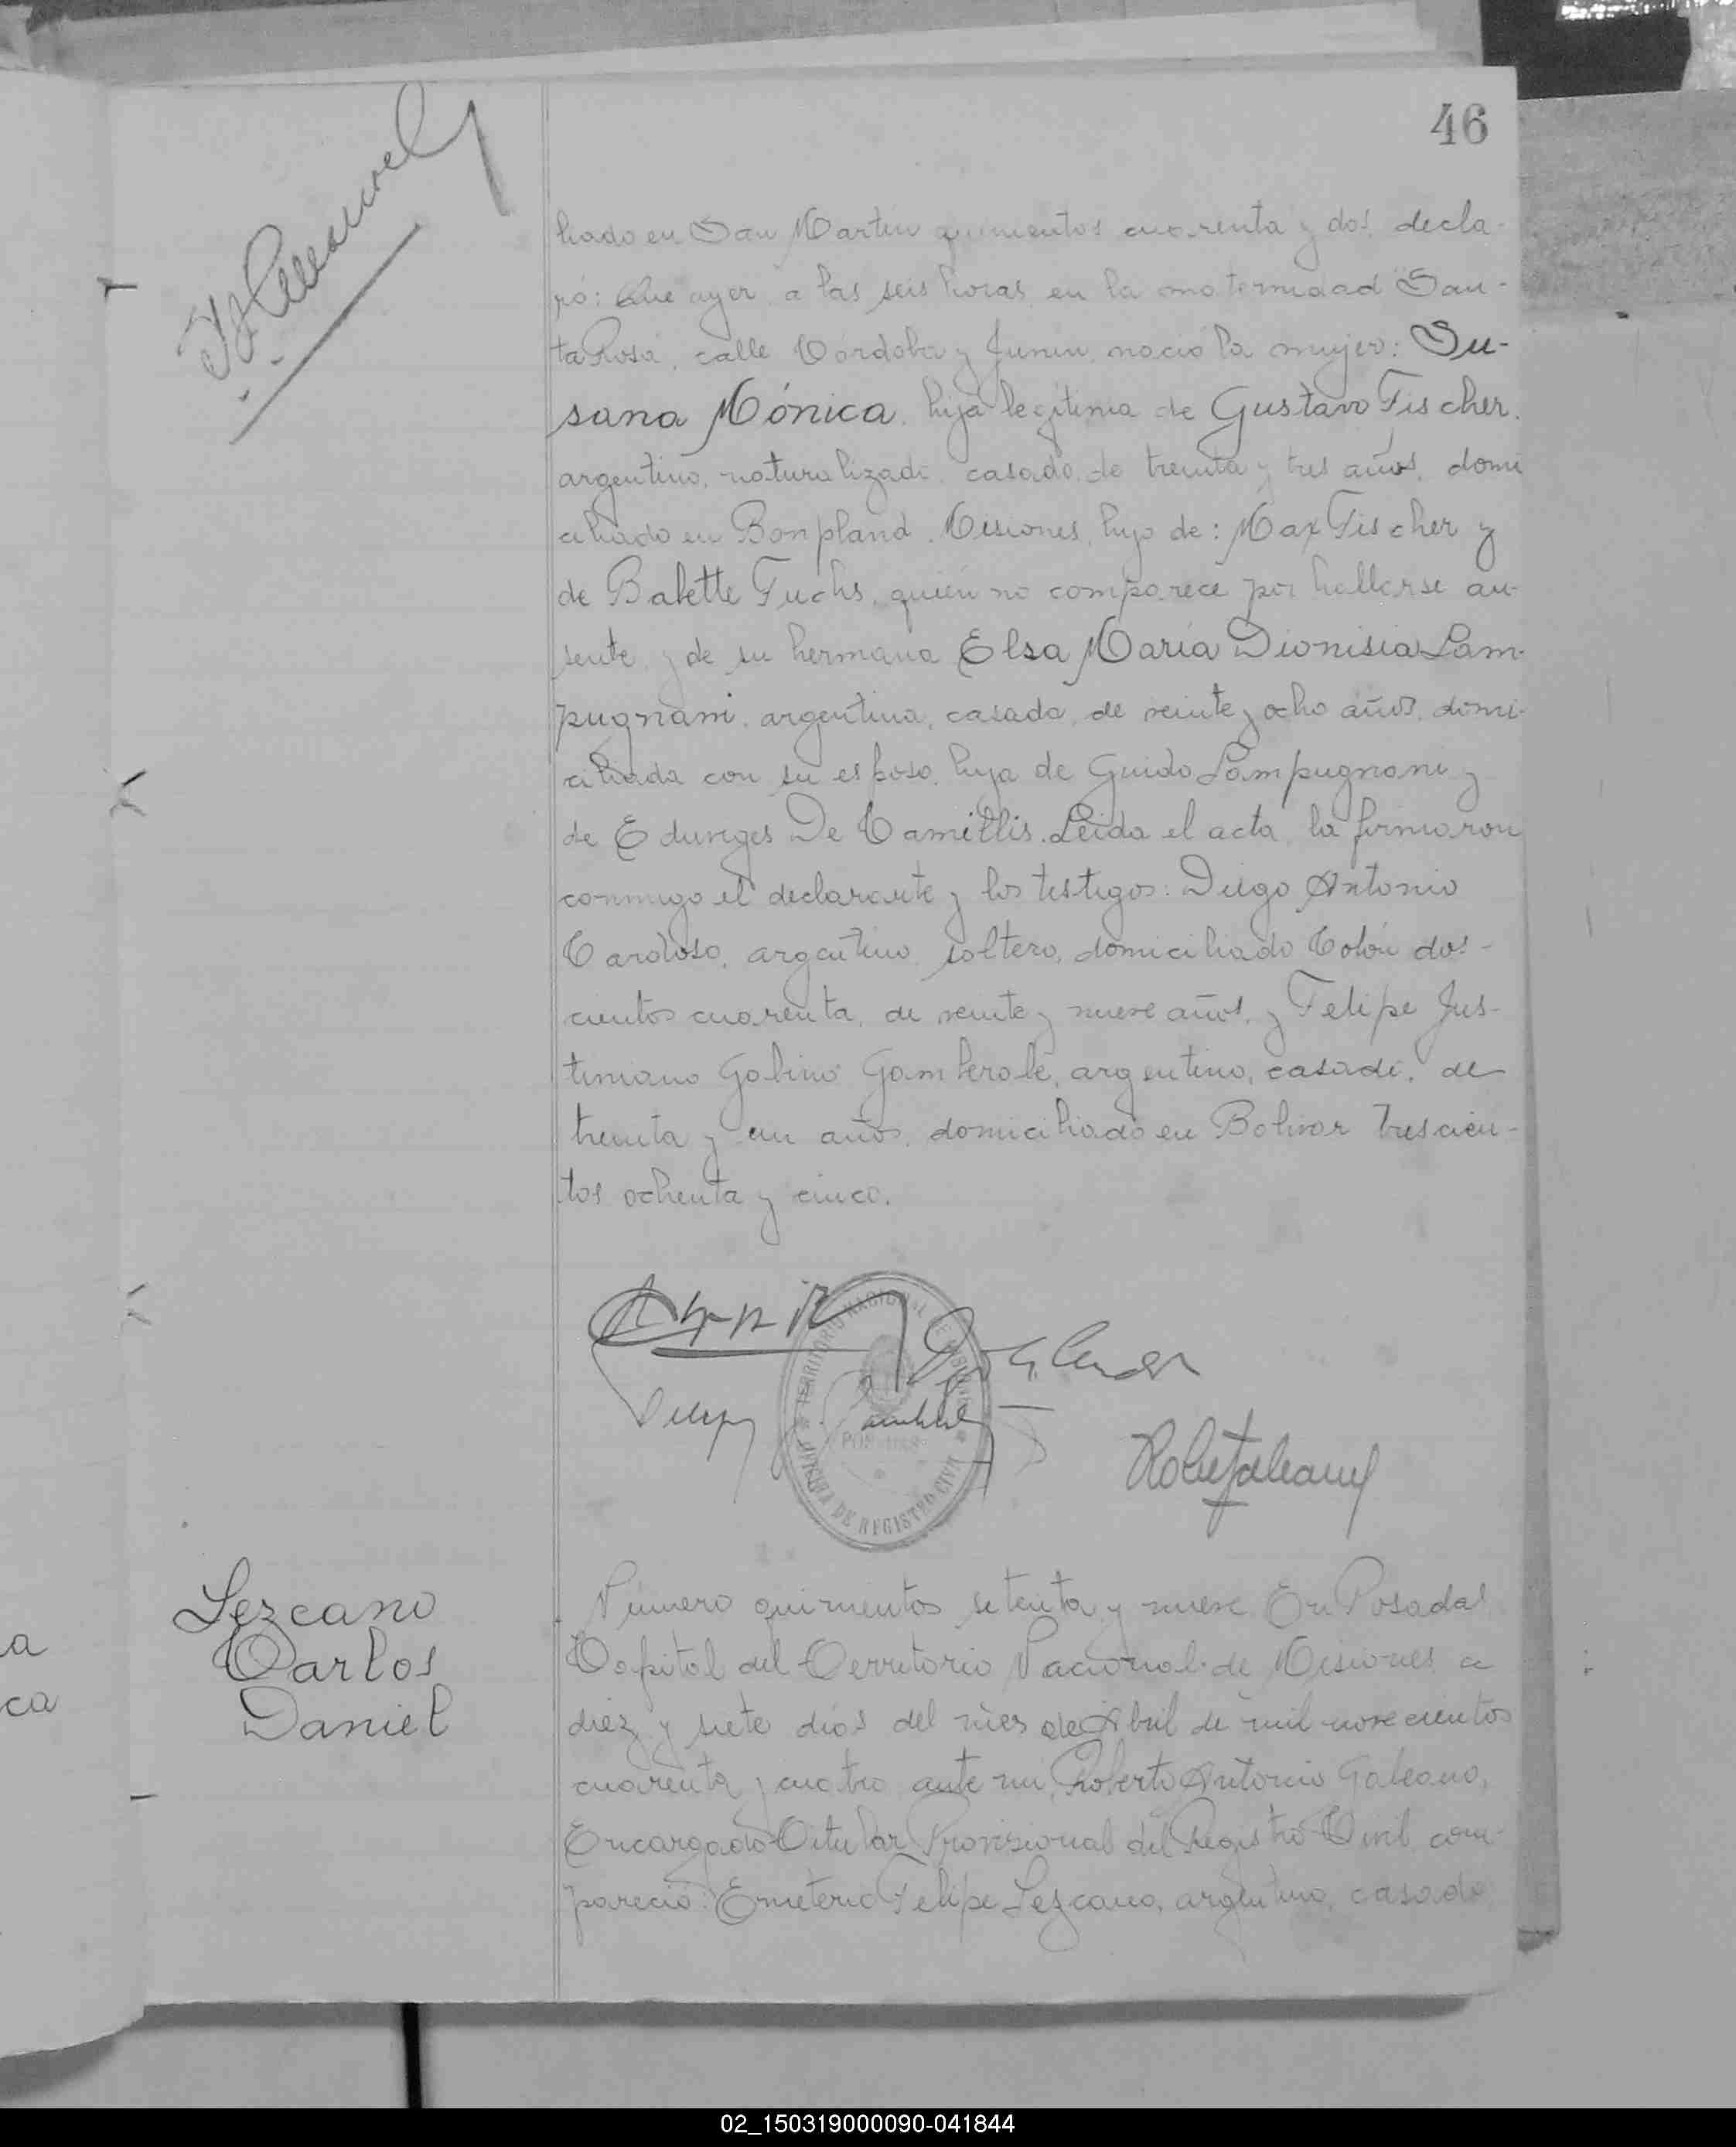 46
liado en San Martin quinientos cuarenta y dos, decla-
ró: Que ayer, a las seis horas, en la maternidad San-
ta Rosa, calle Córdoba y Junin, nació la mujer: Su-
sana Mónica, hija legitima de Gustavo Fischer,
argentino, naturalizado, casado, de treinta y tres años, domi
ciliado en Bonpland, Misiones, hijo de: Max Fischer y
de Babette Fuchs, quién no comparece por hallarse au-
sente, y de su hermana Elsa María Dionisia Lam-
pugnani, argentina, casada, de veinte y ocho años, domi-
ciliada con su esposo, hija de Guido Lampugnani y
de Eduviges De Camillis. Leida el acta, la firmaron
conmigo el declarante y los testigos: Diego Antonio
Cardoso, argentino, soltero, domiciliado Colón dos-
cientos cuarenta, de veinte y nueve años, y Felipe Jus-
tiniano Gabino Gamberale, argentino, casado, de
treinta y un años, domiciliado en Bolivar trescien-
tos ochenta y cinco.
TERRITORIO NACIONAL DE MISIONES
POSADAS
OFICINA DE REGISTRO CIVIL
Lezcano
Carlos
Daniel
Número quinientos setenta y nueve. En Posadas
Capital del Territorio Nacional de Misiones a
diez y siete dias del mes de Abril de mil novecientos
cuarenta y cuatro, ante mi, Roberto Antonio Galeano,
Encargado Titular Provisional del Registro Civil com-
pareció: Emeterio Felipe Lezcano, argentino, casado
a
ca
02_150319000090-041844